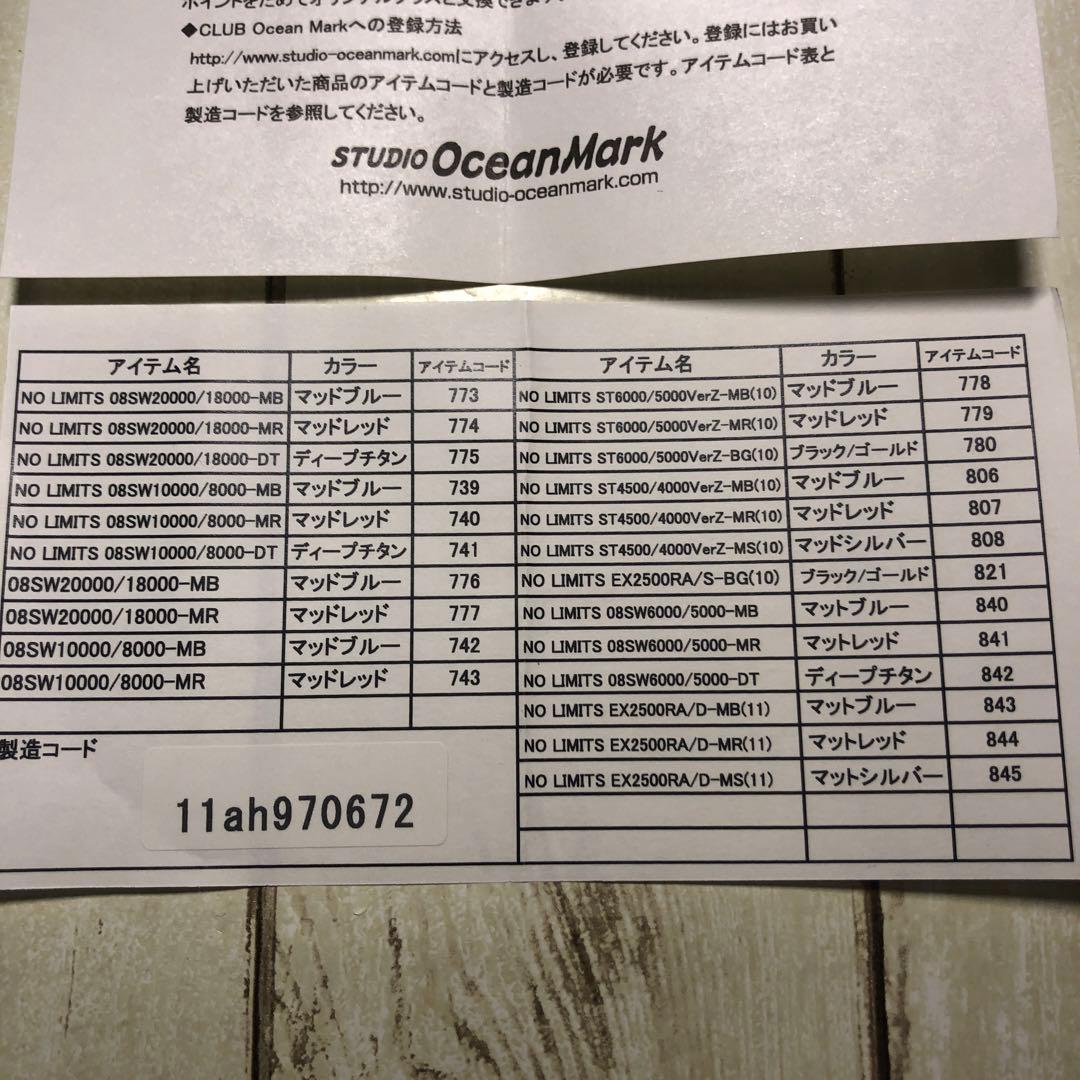 ポイントをためてオリジナルグッズと交換できます。
◆CLUB Ocean Markへの登録方法
http://www.studio-oceanmark.comにアクセスし、登録してください。登録にはお買い
上げいただいた商品のアイテムコードと製造コードが必要です。アイテムコード表と
製造コードを参照してください。
STUDIO OceanMark
http://www.studio-oceanmark.com
アイテム名 カラー アイテムコード
NO LIMITS 08SW20000/18000-MB マッドブルー 773
NO LIMITS 08SW20000/18000-MR マッドレッド 774
NO LIMITS 08SW20000/18000-DT ディープチタン 775
NO LIMITS 08SW10000/8000-MB マッドブルー 739
NO LIMITS 08SW10000/8000-MR マッドレッド 740
NO LIMITS 08SW10000/8000-DT ディープチタン 741
08SW20000/18000-MB マッドブルー 776
08SW20000/18000-MR マッドレッド 777
08SW10000/8000-MB マッドブルー 742
08SW10000/8000-MR マッドレッド 743
製造コード
11ah970672
アイテム名 カラー アイテムコード
NO LIMITS ST6000/5000VerZ-MB(10) マッドブルー 778
NO LIMITS ST6000/5000VerZ-MR(10) マッドレッド 779
NO LIMITS ST6000/5000VerZ-BG(10) ブラック/ゴールド 780
NO LIMITS ST4500/4000VerZ-MB(10) マッドブルー 806
NO LIMITS ST4500/4000VerZ-MR(10) マッドレッド 807
NO LIMITS ST4500/4000VerZ-MS(10) マッドシルバー 808
NO LIMITS EX2500RA/S-BG(10) ブラック/ゴールド 821
NO LIMITS 08SW6000/5000-MB マットブルー 840
NO LIMITS 08SW6000/5000-MR マットレッド 841
NO LIMITS 08SW6000/5000-DT ディープチタン 842
NO LIMITS EX2500RA/D-MB(11) マットブルー 843
NO LIMITS EX2500RA/D-MR(11) マットレッド 844
NO LIMITS EX2500RA/D-MS(11) マットシルバー 845